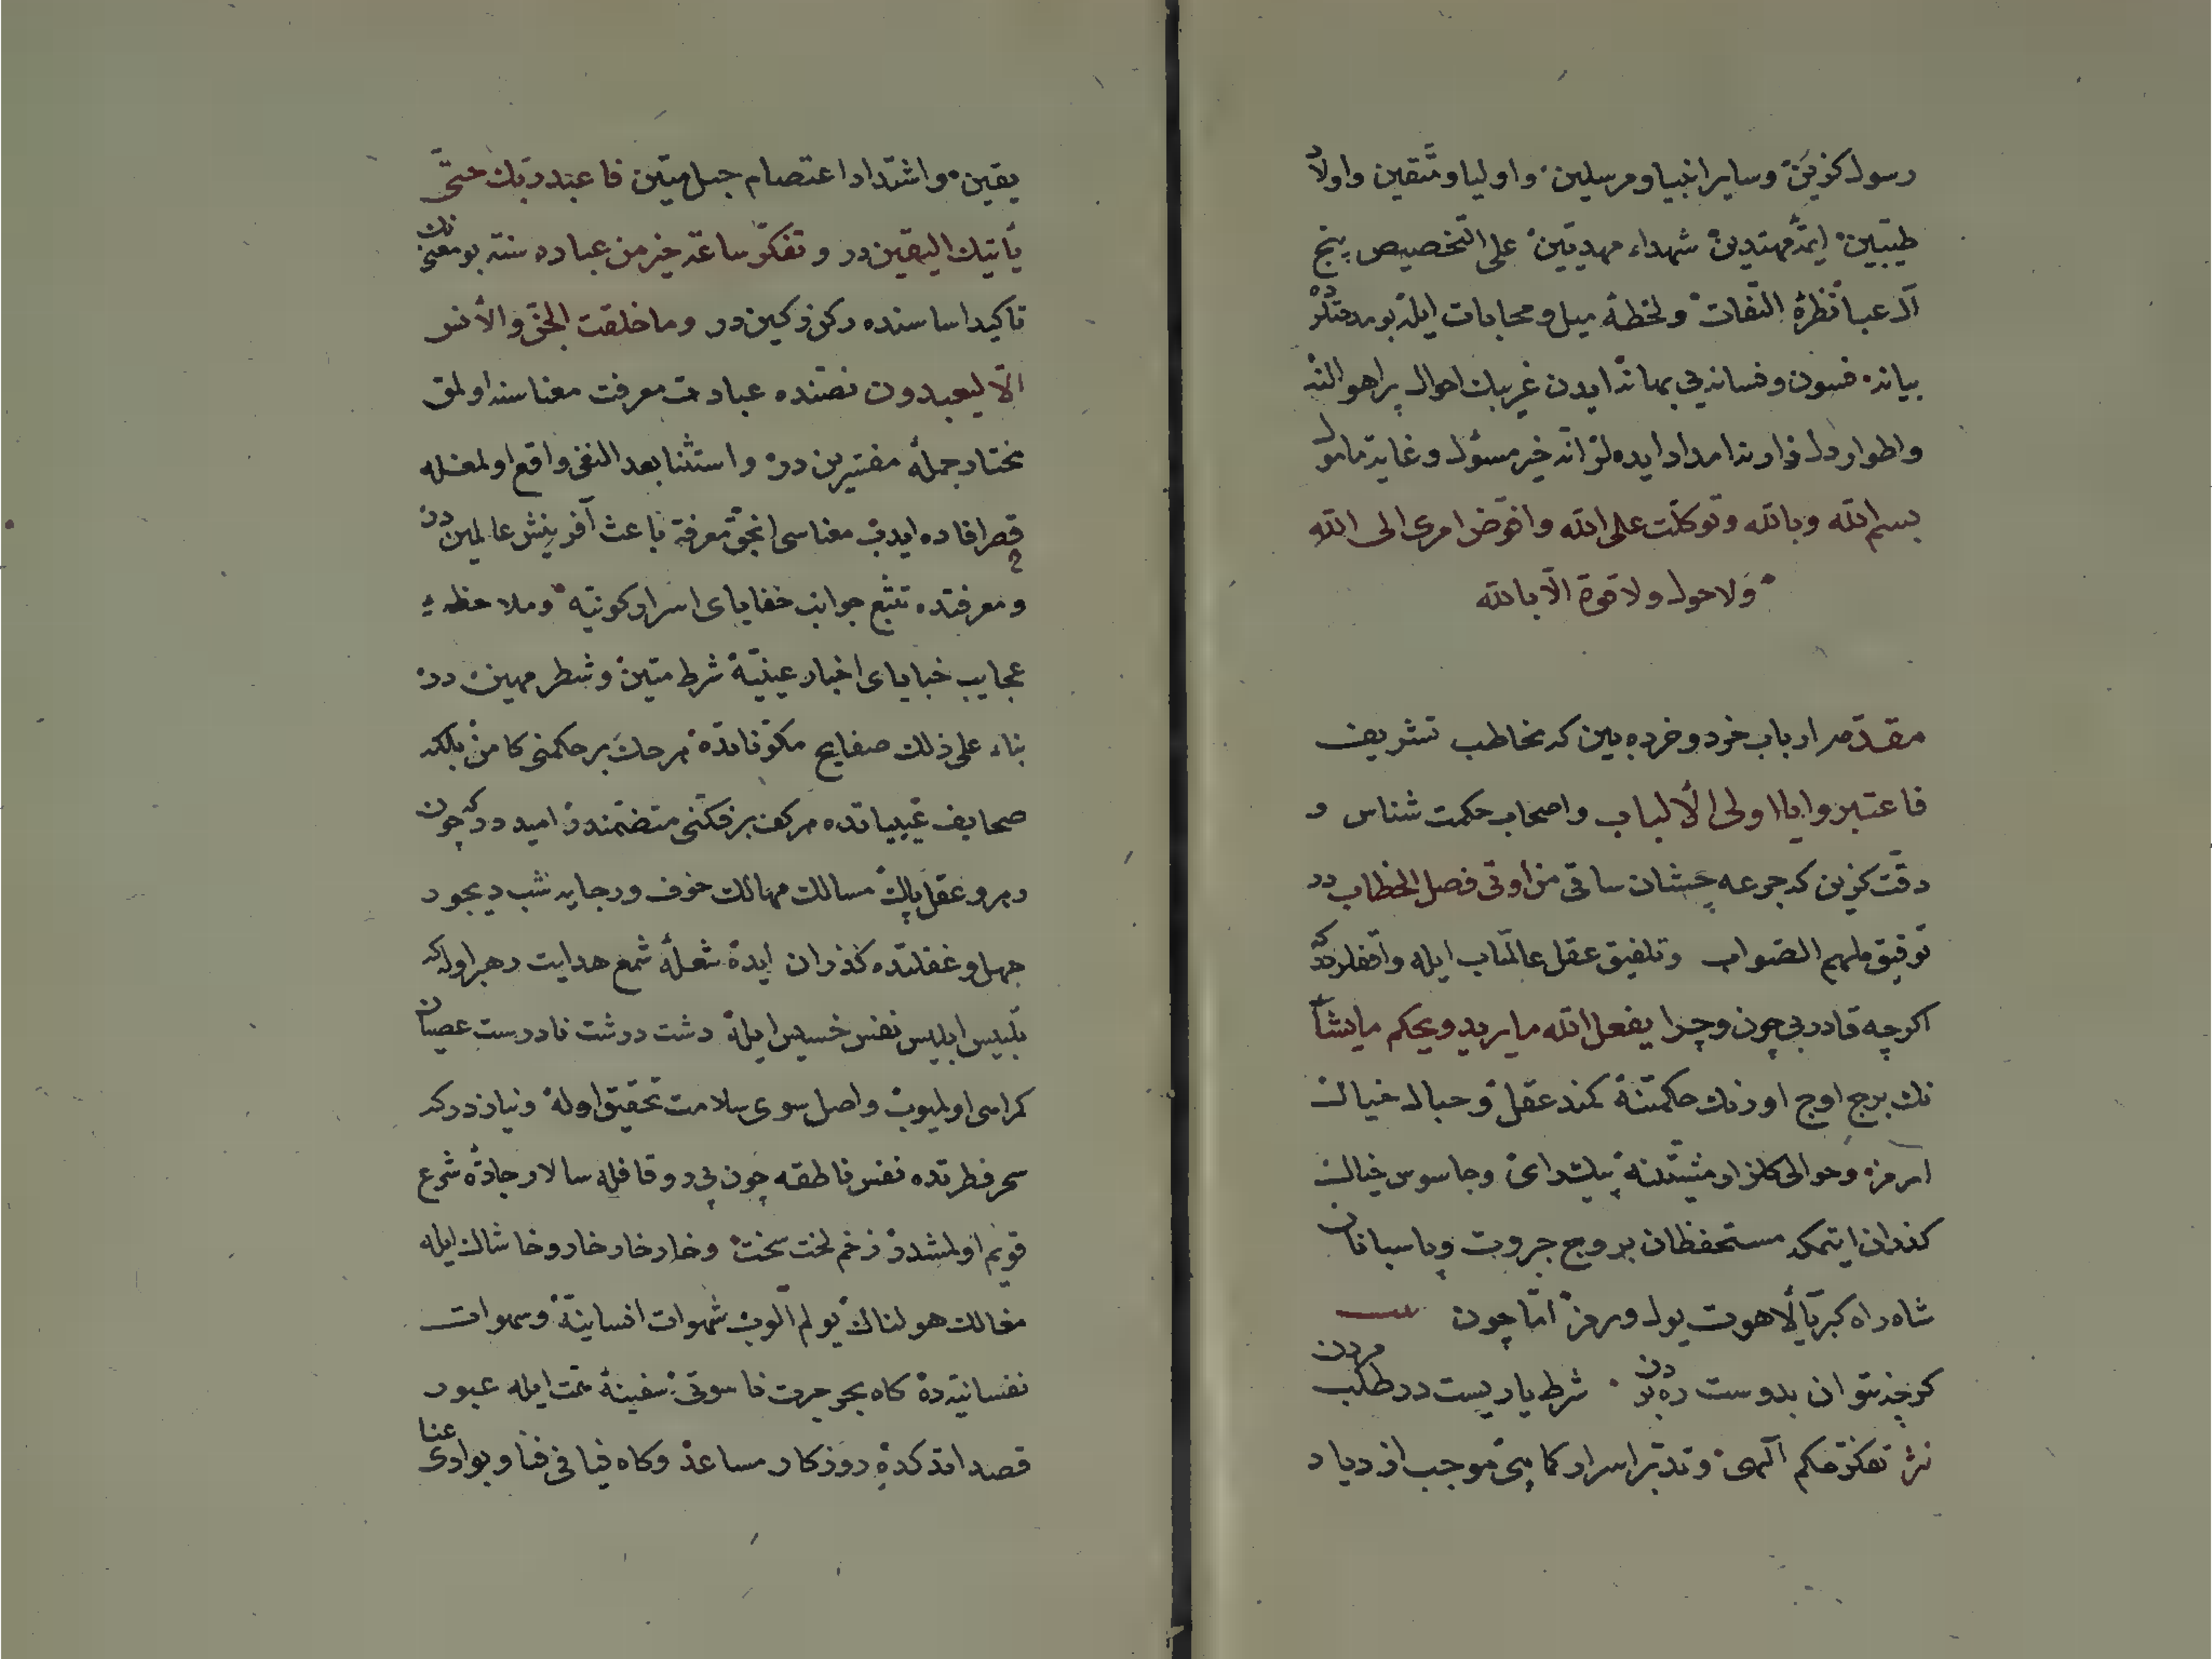 رسول كزين وساير انبيا و مرسلين و اوليا و متقين و اولاد
طيبين ايمه مهتدين شهداء مهديين على التخصيص پنج
آل عبا نظره التفات و لحظه ميل و محابات ايله بو مدقتكرده
بيانه فسون و فسانه يى بهانه ايدن غريبك احوال پر اهوالنه
و اطوار دل فوارينه امداد ايده لر انه خير مسئول و غاية مامول
بسم الله وبالله وتوكلت على الله وافوض امرى الى الله
ولا حول ولا قوة الا بالله
مقدمه ارباب خرد و خرده بين كه مخاطب تشريف
فاعتبروا يا اولى الألباب و اصحاب حكمت شناس و
دقت كزين كه جرعه چشان ساقى من اوتى فصل الخطاب در
توفيق ملهم الصواب و تلفيق عقل عالمتاب ايله واقفلردركه
اكرچه قادر بى چون و چرا يفعل الله ما يريد ويحكم ما يشاء
نك برج اوج اورنك حكمتنه كمند عقل و حبال خيالك
امرمز و حوالى كلزار مشيتنه پيك راى و جاسوس خيالك
كذران ايتمكه مستحفظان بروج جبروت و پاسبانان
شاه راه كبرياى لاهوت يول ويرمز اما چون بيت
كرچه نتوان بدوست ره بردن شرط ياريست در طلب مردن
نثر تفكر حكم الهى و تدبر اسرار كماهى موجب ازدياد
يقين و اشتداد اعتصام حبل متين فاعبد ربك حتى
يأتيك اليقين در و تفكر ساعة خير من عباده سنة بو معنينك
تاكيد اساسنده ركن ركين در وما خلقت الجن والأنس
الا ليعبدون نصنده عبادت معرفت معناسنه اولمق
مختار جمله مفسرين در و استثنا بعد النفى واقع اولمغله
قصر افاده ايدب معناسى انجق معرفة باعث آفرينش عالميندن
و معرفتده تتبع جوانب خفاياى اسرار كونيه و ملاحظه ء
عجايب خباياى اخبار عينيه شرط متين و شطر مهين در
بناء على ذلك صفايح مكوناتده هر حك بر حكمتى كامن بلكه
صحايف غيبياتده هر كف بر فكتى متضمندر اميددركه چون
رهرو عقل پاك مسالك مهالك خوف و رجايه شب ديجور
جهل و غفلتده كذران ايده شعله شمع هدايت رهبر اولدكه
تلبيس ابليس نفس خسيس ايله دشت درشت نادرست عصيان
كمراهى اولميوب واصل سوى سلامت تحقيق اوله و نيازدركه
سحر فطرتده نفس ناطقه چون پى رو قافله سالار جاده شرع
قويم اولمشدر زخم لخت سخت و خار خار خار و خاشاك ايله
مغالك هولناك يولم آلوب شهوات انسانيه و سهوات
نفسانيه ده كاه بحر جرت ناسوتى سفينه همت ايله عبور
قصد اتدكده روزكار مساعد و كاه فيافى فنا و بوادى عنا